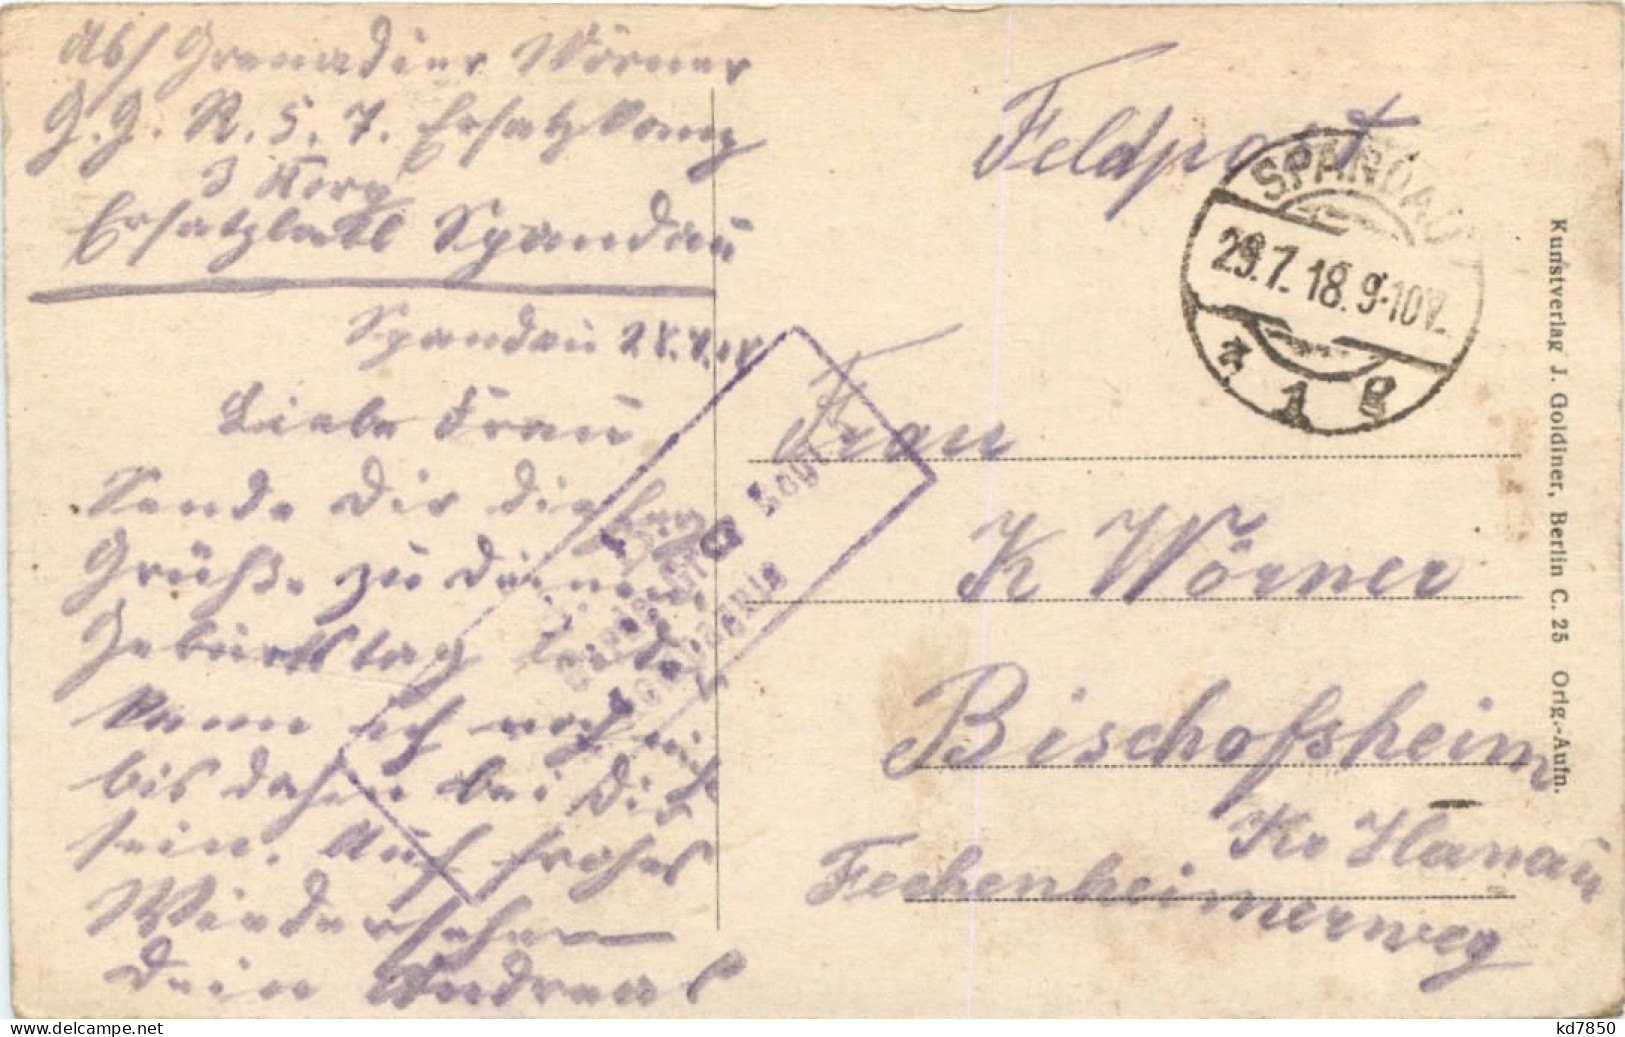 Abs Grenadier Wörner
G. G. R. 5. 7. Ersatzkomp
3 Korp
Ersatzbatl Spandau
Spandau 28.7.18
Liebe Frau
Sende Dir die
Grüße zu deinem
Geburtstag leider
kann ich noch nicht
bis dahin bei Dir
sein. Auf frohes
Wiedersehen
Dein Andreas
Feldpost
SPANDAU
29.7.18.9-10V.
* 1 g
Frau
K Wörner
Bischofsheim
Kr Hanau
Fechenheimerweg
Kunstverlag J. Goldiner, Berlin C. 25 Orig.-Aufn.
www.delcampe.net
kd7850